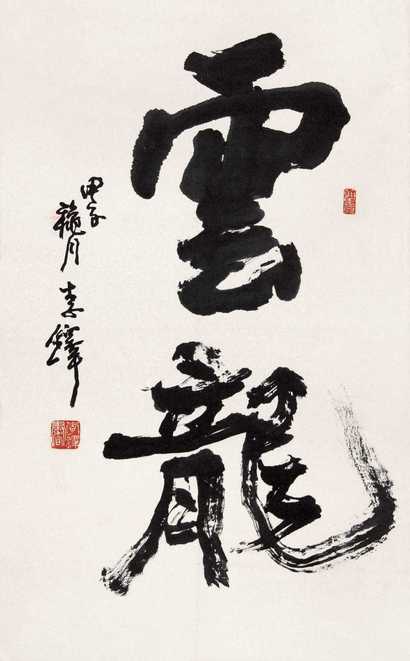 雲龍
甲子
龝月
李鐸